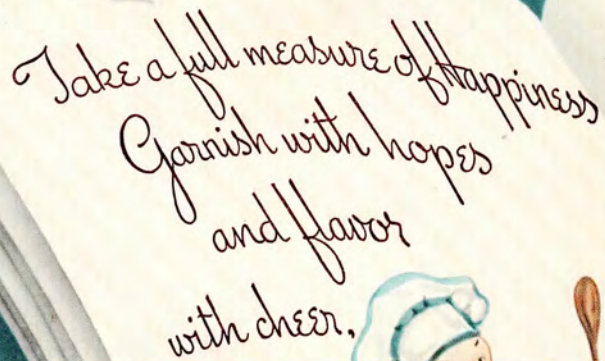 Take a full measure of Happiness
Garnish with hopes
and flavor
with cheer,